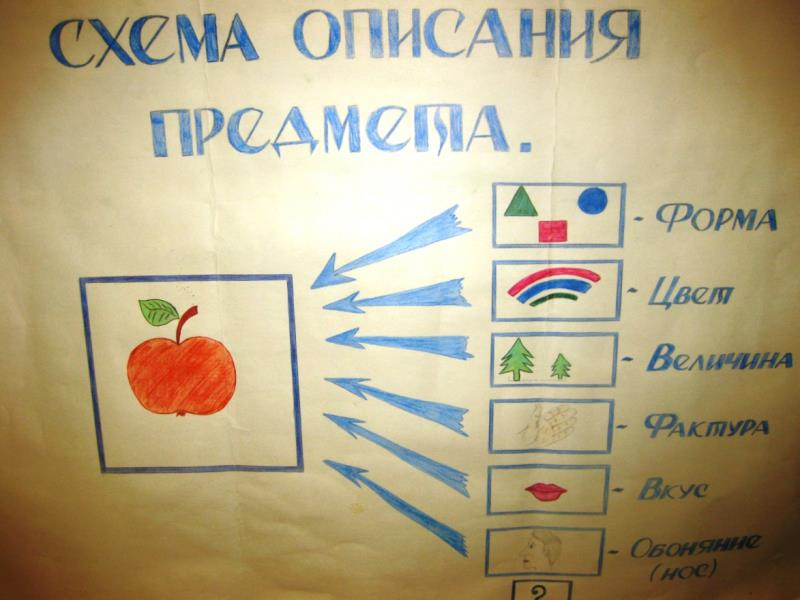 СХЕМА ОПИСАНИЯ
ПРЕДМЕТА.
- ФОРМА
- ЦВЕТ
- ВЕЛИЧИНА
- ФАКТУРА
- ВКУС
- ОБОНЯНИЕ
(НОС)
?